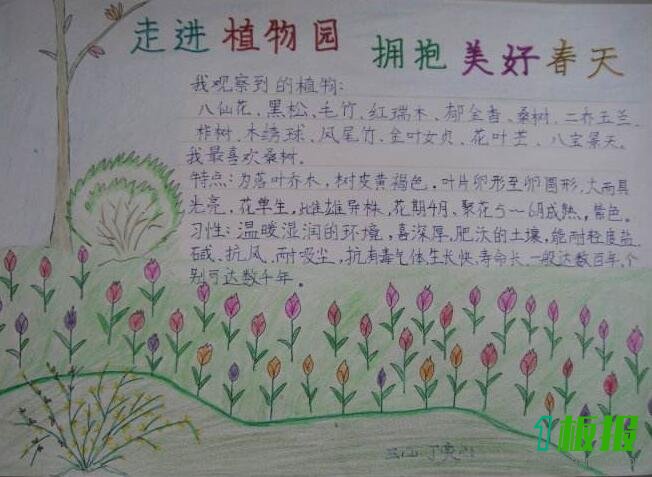 走进植物园 拥抱美好春天
我观察到的植物：
八仙花、黑松、毛竹、红瑞木、郁金香、桑树、二乔玉兰、
柞树、木绣球、凤尾竹、金叶女贞、花叶芒、八宝景天。
我最喜欢桑树。
特点：为落叶乔木，树皮黄褐色，叶片卵形至卵圆形，大而具
光亮，花单生，雌雄异株，花期4月、聚花5～6月成熟，紫色。
习性：温暖湿润的环境，喜深厚，肥沃的土壤，能耐轻度盐
碱、抗风、耐吸尘，抗有毒气体生长快，寿命长、一般达数百年，个
别可达数千年。
板报